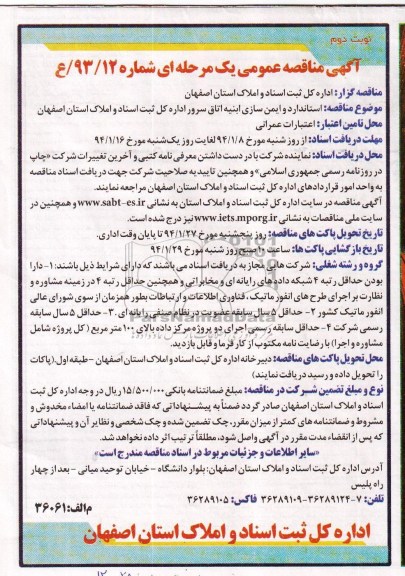 نوبت دوم
آگهی مناقصه عمومی یک مرحله ای شماره ۹۳/۱۲/ع
مناقصه گزار: اداره کل ثبت اسناد و املاک استان اصفهان
موضوع مناقصه: استاندارد و ایمن سازی ابنیه اتاق سرور اداره کل ثبت اسناد و املاک استان اصفهان
محل تامین اعتبار: اعتبارات عمرانی
مهلت دریافت اسناد: از روز شنبه مورخ ۹۴/۱/۸ لغایت روز یک‌شنبه مورخ ۹۴/۱/۱۶
محل دریافت اسناد: نماینده شرکت با در دست داشتن معرفی نامه کتبی و آخرین تغییرات شرکت «چاپ
در روزنامه رسمی جمهوری اسلامی» و همچنین تایید به صلاحیت شرکت جهت دریافت اسناد مناقصه
به واحد امور قراردادهای اداره کل ثبت اسناد و املاک استان اصفهان مراجعه نمایند.
آگهی مناقصه در سایت اداره کل ثبت اسناد و املاک استان به نشانی www.sabt-es.ir و همچنین در
سایت ملی مناقصات به نشانی www.iets.mporg.ir نیز درج شده است.
تاریخ تحویل پاکت های مناقصه: روز پنجشنبه مورخ ۹۴/۱/۲۷ تا پایان وقت اداری.
تاریخ بازگشایی پاکت ها: ساعت ۹ صبح روز شنبه مورخ ۹۴/۱/۲۹
گروه و رشته شغلی: شرکت هایی مجاز به دریافت اسناد می باشند که دارای شرایط ذیل باشند: ۱- دارا
بودن حداقل رتبه ۴ شبکه داده های رایانه ای و مخابراتی و همچنین حداقل رتبه ۴ در زمینه مشاوره و
نظارت بر اجرای طرح های انفورماتیک، فناوری اطلاعات و ارتباطات بطور همزمان از سوی شورای عالی
انفورماتیک کشور ۲- حداقل ۵ سال سابقه عضویت در نظام صنفی رایانه ای. ۳- حداقل ۵ سال سابقه
رسمی شرکت ۴- حداقل سابقه رسمی اجرای دو پروژه مرکز داده بالای ۱۰۰ متر مربع (کل پروژه شامل
مشاوره و اجرا) با رضایت نامه مکتوب از کارفرما و قابل بازدید.
محل تحویل پاکت های مناقصه: دبیرخانه اداره کل ثبت اسناد و املاک استان اصفهان -طبقه اول. (پاکات
را تحویل داده و رسید دریافت نمایند)
نوع و مبلغ تضمین شرکت در مناقصه: مبلغ ضمانتنامه بانکی ۱۵/۵۰۰/۰۰۰ ریال در وجه اداره کل ثبت
اسناد و املاک استان اصفهان صادر گردد ضمناً به پیشنهاداتی که فاقد ضمانتنامه یا امضاء مخدوش و
مشروط و ضمانتنامه های کمتر از میزان مقرر، چک تضمین شده و چک شخصی و نظایر آن و پیشنهاداتی
که پس از انقضاء مدت مقرر در آگهی واصل شود، مطلقاً ترتیب اثر داده نخواهد شد.
«سایر اطلاعات و جزئیات مربوط در اسناد مناقصه مندرج است»
آدرس اداره کل ثبت اسناد و املاک استان اصفهان: بلوار دانشگاه - خیابان توحید میانی - بعد از چهار
راه پلیس
تلفن: ۷-۳۶۲۸۹۱۲۴-۳۶۲۸۹۱۰۹ فاکس: ۳۶۲۸۹۱۰۵
م الف: ۳۶۰۶۱
اداره کل ثبت اسناد و املاک استان اصفهان